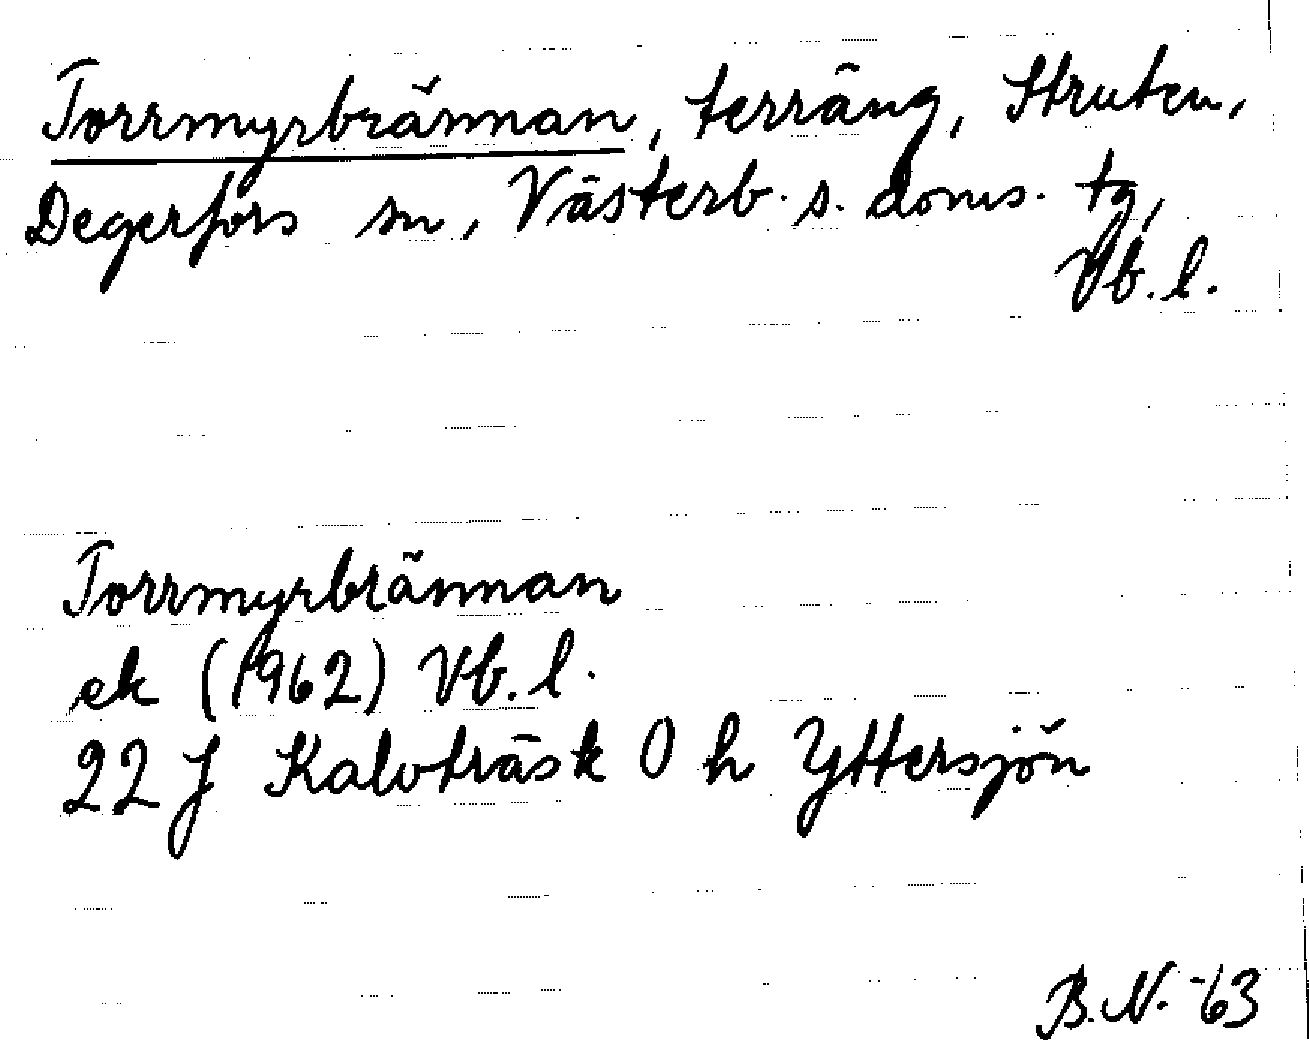 Torrmyrbrännan, terräng, Struten,
Degerfors sn, Västerb. s. doms. tg,
Vb. l.
Torrmyrbrännan
ek (1962) Vb. l.
22 J Kalvträsk 0 h Yttersjön
B.N. -63